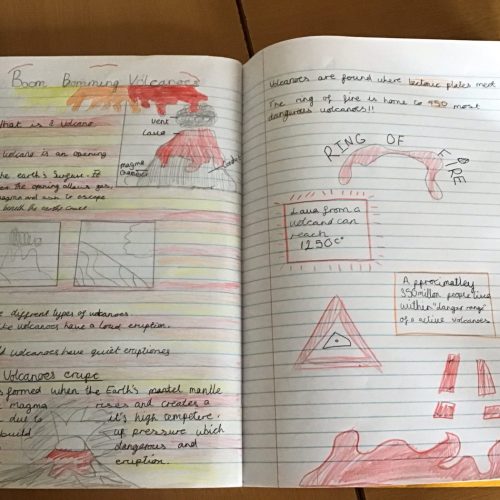 Boom Bomming Volcanoes
What is a Volcano
Vent
Lava
magma
chamber
volcano is an opening
the earth's surgace. It
the opening allows gas,
magma and ash to escape
beneath the earths
different types of volcanoes.
like volcanoes have a loud eruption.
volcanoes have quiet eruptiones
Volcanoes erupt
formed when the Earth's mantel mantle
magma rises and creates a
due to it's high tempetere.
build up pressure which
dangerous and
eruption.
Volcanoes are found where tectonic plates meet
The ring of fire is home to 450 most
dangerous volcanoes!!
RING OF FIRE
Lava from a
volcano can
reach
1250c°
Approximatley
350 million people live
within "danger range"
of a active volcanoes